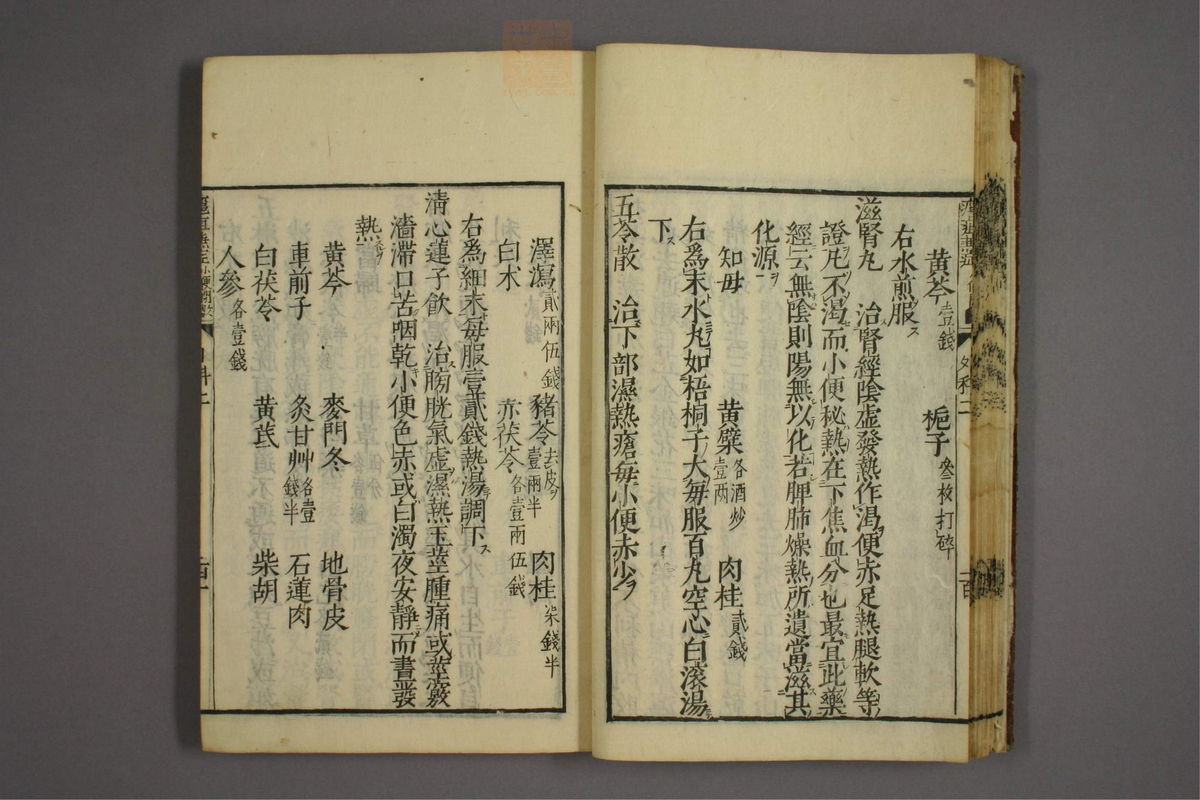 黃芩壹錢 梔子叄枚打碎
右水煎服ス
滋腎丸 治腎經陰虛發熱作渴便赤足熱腿軟等
證凡不渴而小便秘熱在下焦血分也最宜此藥
經云無陰則陽無以化若脾肺燥熱所遺當滋其
化源
知母 黃糪各酒炒壹兩 肉桂貳錢
右爲末水丸如梧桐子大每服百丸空心白滾湯
下ス
五苓散 治下部濕熱瘡每小便赤少
外科二
百
澤瀉貳兩伍錢 豬苓去皮壹兩半 肉桂柒錢半
白术 赤茯苓各壹兩伍錢
右爲細末每服壹貳錢熱湯調下ス
清心蓮子飲 治膀胱氣虛濕熱玉莖腫痛或莖竅
濇滯口苦咽乾小便色赤或白濁夜安靜而晝發
熱
黃芩 麥門冬 地骨皮
車前子 炙甘艸各壹錢半 石蓮肉
白茯苓 黃芪 柴胡
人參各壹錢